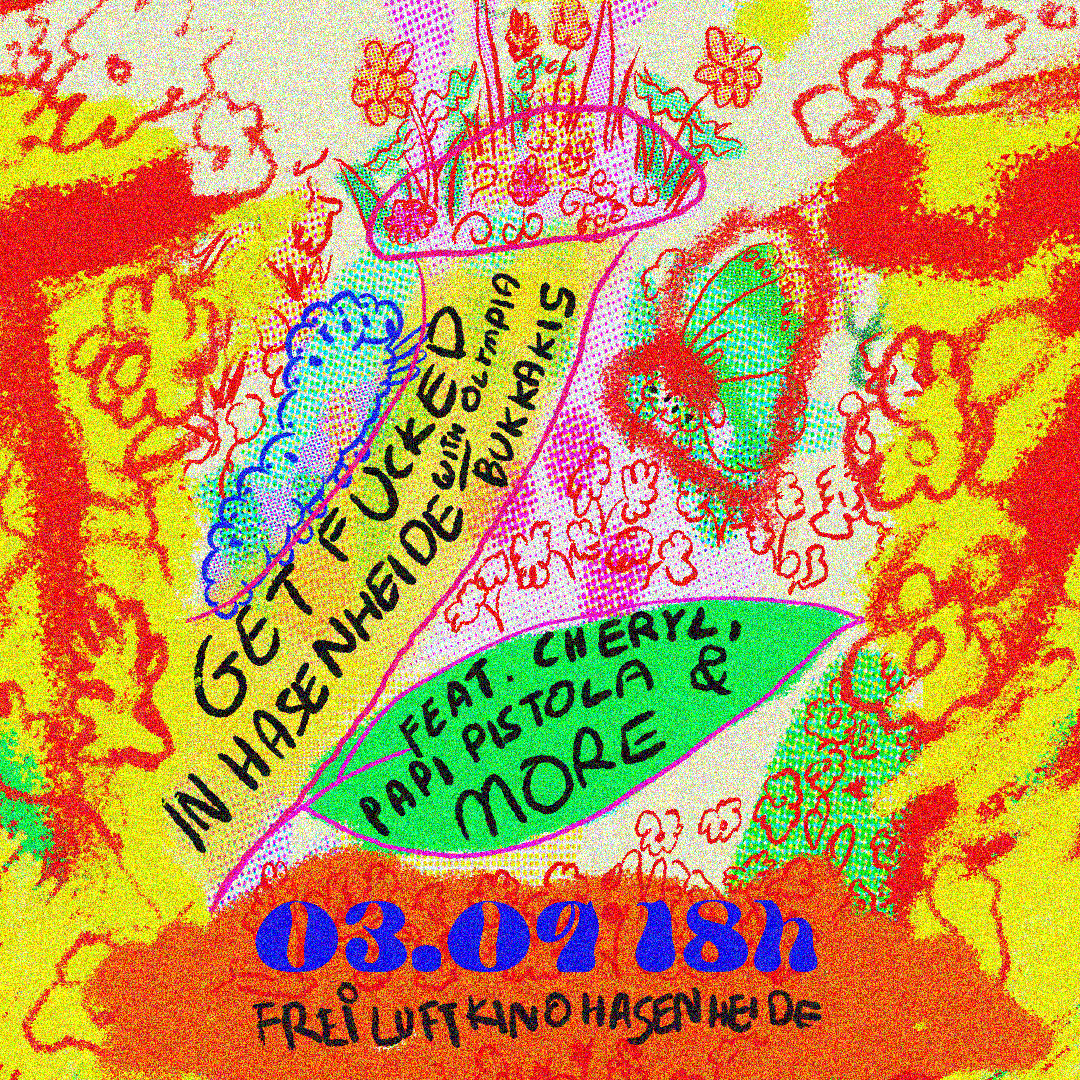 GET FUCKED
IN HASENHEIDE
with OLYMPIA
BUKKAKIS
FEAT. CHERYL,
PAPI PISTOLA &
MORE
03.09 18h
FREILUFTKINO HASENHEIDE